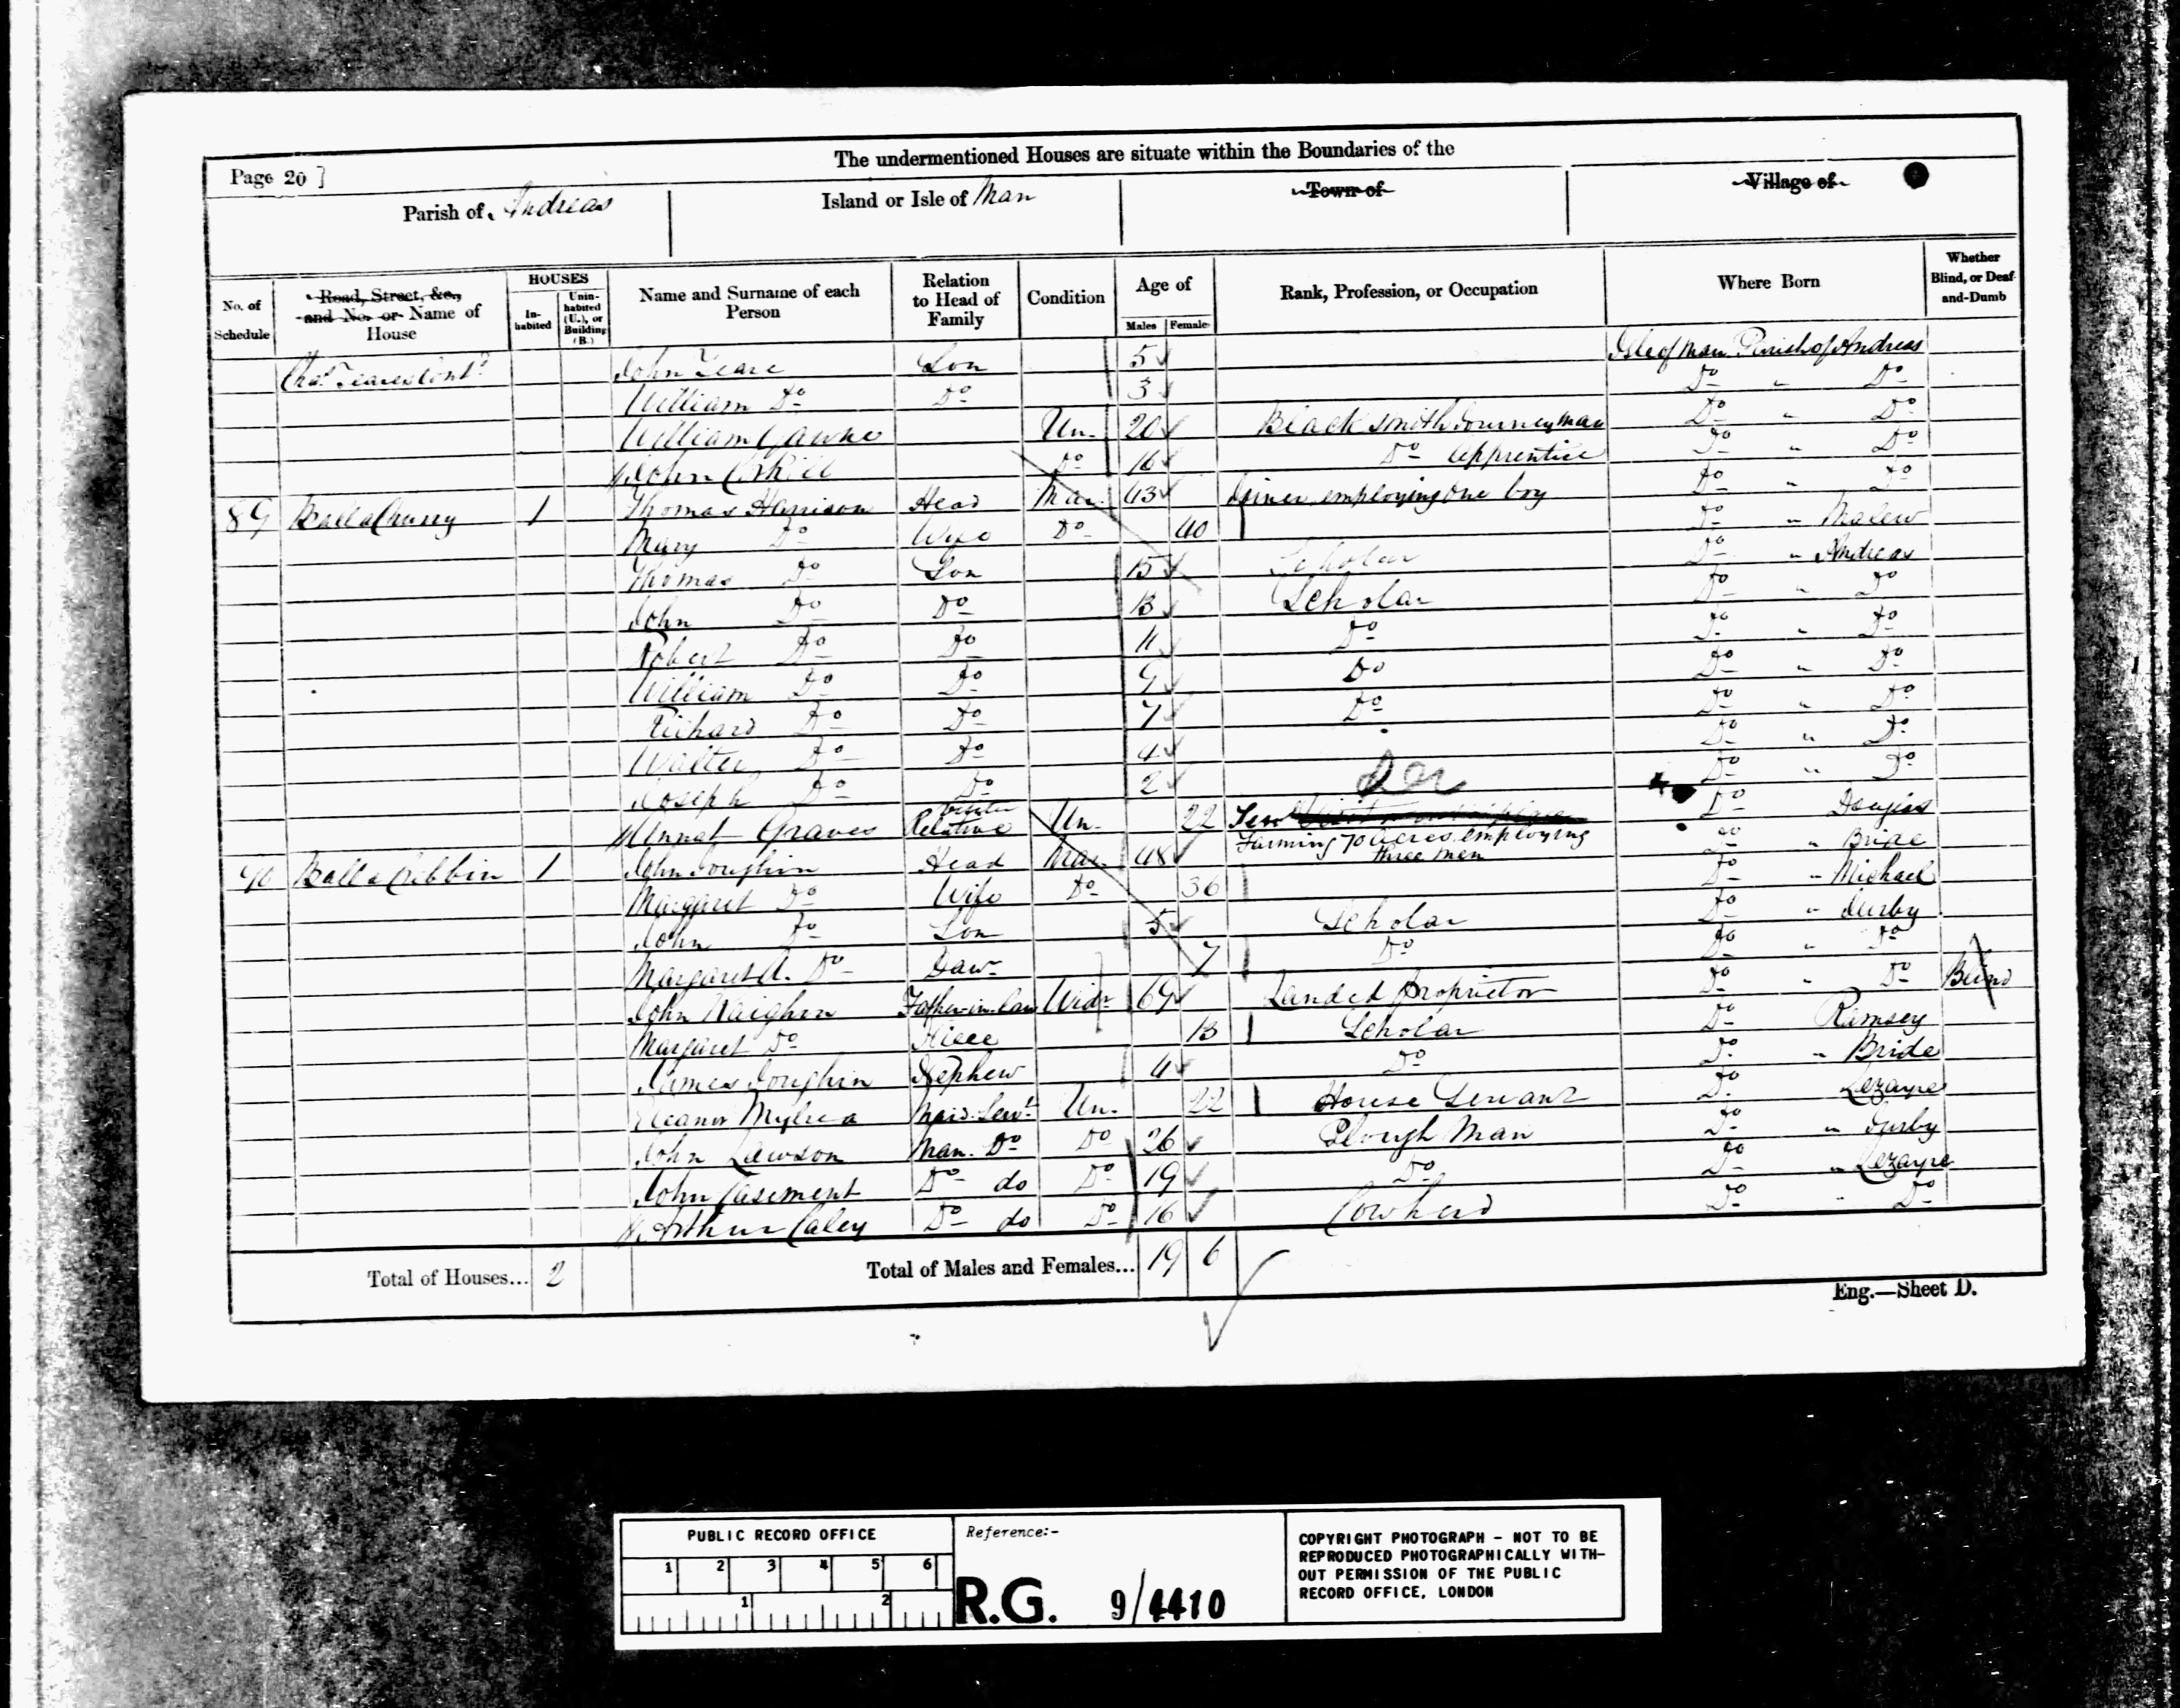 The undermentioned Houses are situate within the Boundaries of the
Page 20]
Parish of Andreas
Island or Isle of Man
Town of
Village of
No. of Schedule
Road, Street, &c., and No. or Name of House
HOUSES
In-habited
Unin-habited (U.), or Building (B.)
Name and Surname of each Person
Relation to Head of Family
Condition
Age of
Males
Females
Rank, Profession, or Occupation
Where Born
Whether Blind, or Deaf-and-Dumb
Chas Teares Contd John Teare Son 5 Isle of Man Parish of Andreas
William Do Do 3 Do " Do
William Un. 20 Blacksmith Journeyman Do " Do
John Corkill Do 16 Do Apprentice Do " Do
89 BallaChurry 1 Thomas Harrison Head Mar. 43 Joiner employing One boy Do " Do
Mary Do Wife Do 40 Do " Malew
Thomas Do Son 15 Scholar Do " Andreas
John Do Do 13 Scholar Do " Do
Robert Do Do 11 Do Do " Do
William Do Do 9 Do Do " Do
Richard Do Do 7 Do Do " Do
Walter Do Do 4 Do " Do
Joseph Do Do 2 Do " Do
Annat Graves Visitor Relative Un. 22 Do Douglas
90 Balla Cribbin 1 John Joughin Head Mar. 48 Farming 70 acres employing three men Do " Bride
Margaret Do Wife Do 36 Do " Michael
John Do Son 5 Scholar Do " Jurby
Margaret A. Do Daur 7 Do Do " Do
John Kaighin Father-in-law Widr 69 Landed Proprietor Do " Do Blind
Margaret Do Niece 13 Scholar Do Ramsey
James Joughin Nephew 4 Do Do " Bride
Eleanor Mylrea Maid Servt Un. 22 House Servant Do Lezayre
John Lawson Man. Do Do 26 Plough Man Do " Jurby
John Casement Do do Do 19 Do Do " Lezayre
Arthur Caley Do do Do 16 Cowherd Do " Do
Total of Houses... 2
Total of Males and Females... 19 6
Eng.—Sheet D.
PUBLIC RECORD OFFICE
1 2 3 4 5 6
1 2
Reference:-
R.G. 9/4410
COPYRIGHT PHOTOGRAPH - NOT TO BE
REPRODUCED PHOTOGRAPHICALLY WITH-
OUT PERMISSION OF THE PUBLIC
RECORD OFFICE, LONDON